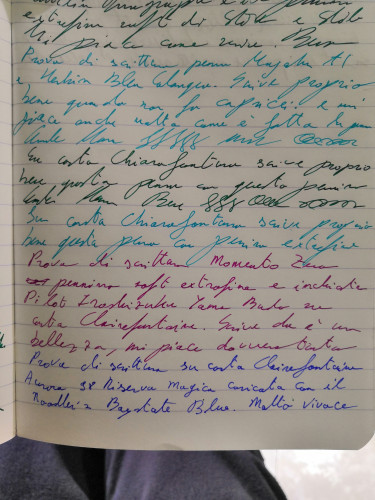 extrafine soft di Stilo e Stile
Mi piace come scrive. Buon
Prova di scrittura penna Magna A1
e Herbin Bleu Calanque. Scrive proprio
bene quando non fa capricci e mi
piace anche molto come è fatta la penna
Su carta Chiarafontaine scrive proprio
bene questa penna con questo pennino
Su carta Chiarafontaine scrive proprio
bene questa penna con pennino extrafine
Prova di scrittura Momento Zero
pennino soft extrafine e inchiostro
Pilot Iroshizuku Yama Budo su
carta Clairefontaine. Scrive che è una
bellezza, mi piace davvero tanto
Prova di scrittura su carta Clairefontaine
Aurora 88 Riserva Magica caricata con il
Noodler's Baystate Blue. Molto vivace